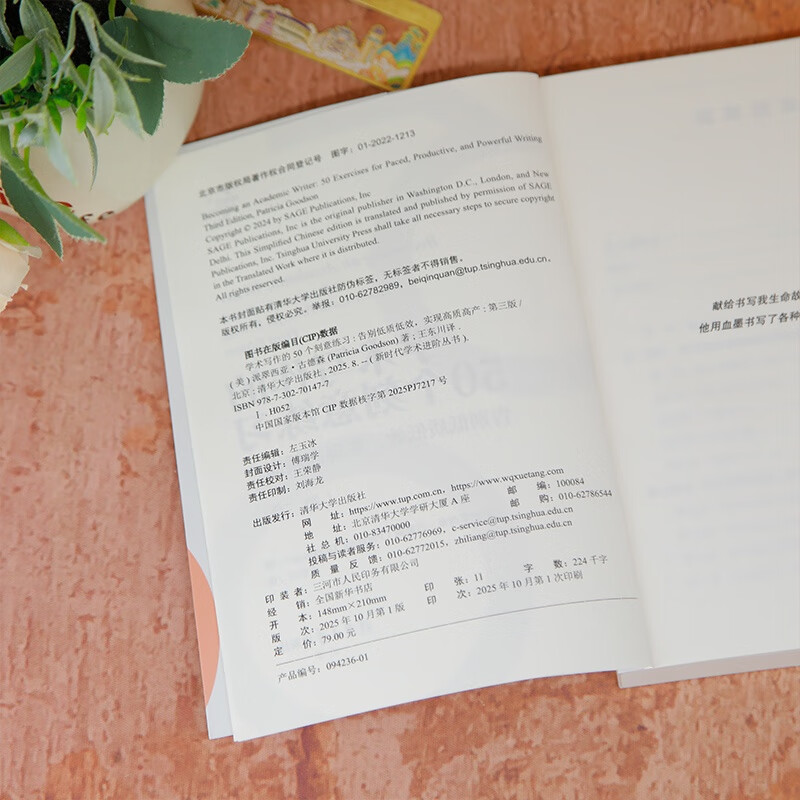 北京市版权局著作权合同登记号 图字：01-2022-1213
Becoming an Academic Writer: 50 Exercises for Paced, Productive, and Powerful Writing
Third Edition, Patricia Goodson
Copyright © 2024 by SAGE Publications, Inc
SAGE Publications, Inc is the original publisher in Washington D.C., London, and New
Delhi. This Simplified Chinese edition is translated and published by permission of SAGE
Publications, Inc. Tsinghua University Press shall take all necessary steps to secure copyright
in the Translated Work where it is distributed.
All rights reserved.
本书封面贴有清华大学出版社防伪标签，无标签者不得销售。
版权所有，侵权必究。举报：010-62782989，beiqinquan@tup.tsinghua.edu.cn。
图书在版编目(CIP)数据
学术写作的 50 个刻意练习：告别低质低效，实现高质高产：第三版 /
（美）派翠西亚·古德森 (Patricia Goodson) 著；王东川译 .
北京：清华大学出版社，2025. 8. --（新时代学术进阶丛书）.
ISBN 978-7-302-70147-7
Ⅰ . H052
中国国家版本馆 CIP 数据核字第 2025PJ7217 号
责任编辑：左玉冰
封面设计：傅瑞学
责任校对：王荣静
责任印制：刘海龙
出版发行：清华大学出版社
网 址：https://www.tup.com.cn，https://www.wqxuetang.com
地 址：北京清华大学学研大厦 A 座 邮 编：100084
社 总 机：010-83470000 邮 购：010-62786544
投稿与读者服务：010-62776969，c-service@tup.tsinghua.edu.cn
质 量 反 馈：010-62772015，zhiliang@tup.tsinghua.edu.cn
印 装 者：三河市人民印务有限公司
经 销：全国新华书店
开 本：148mm×210mm 印 张：11 字 数：224 千字
版 次：2025 年 10 月第 1 版 印 次：2025 年 10 月第 1 次印刷
定 价：79.00 元
产品编号：094236-01
献给书写我生命故
他用血墨书写了各种